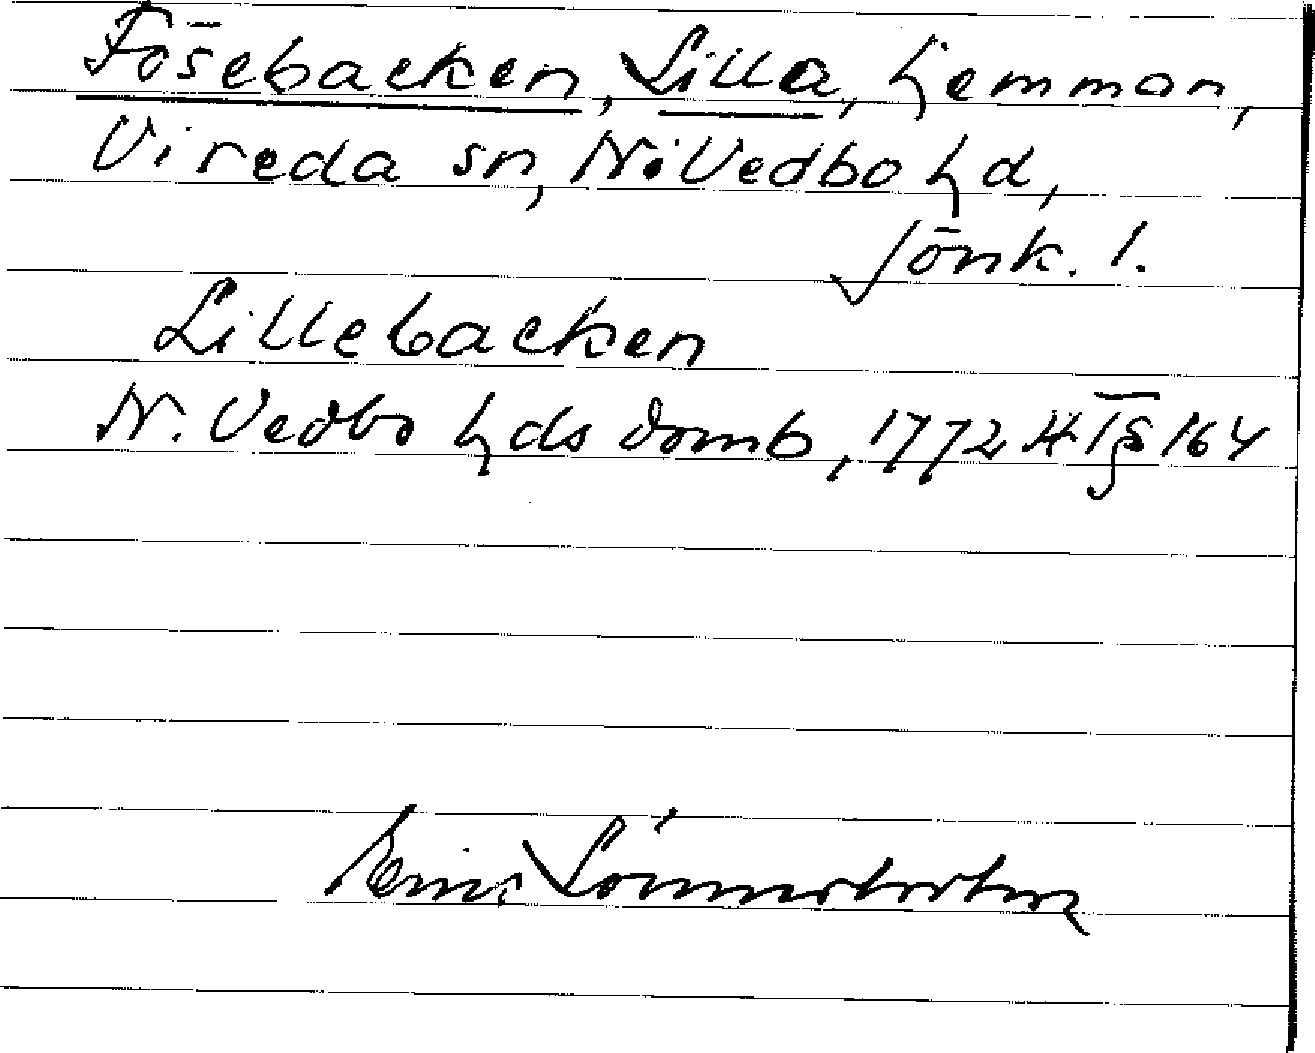 Fösebacken, Lilla, hemman,
Vireda sn, N. Vedbo hd,
Jönk. l.
Lillebacken
N. Vedbo hds domb, 1772 Ht § 164